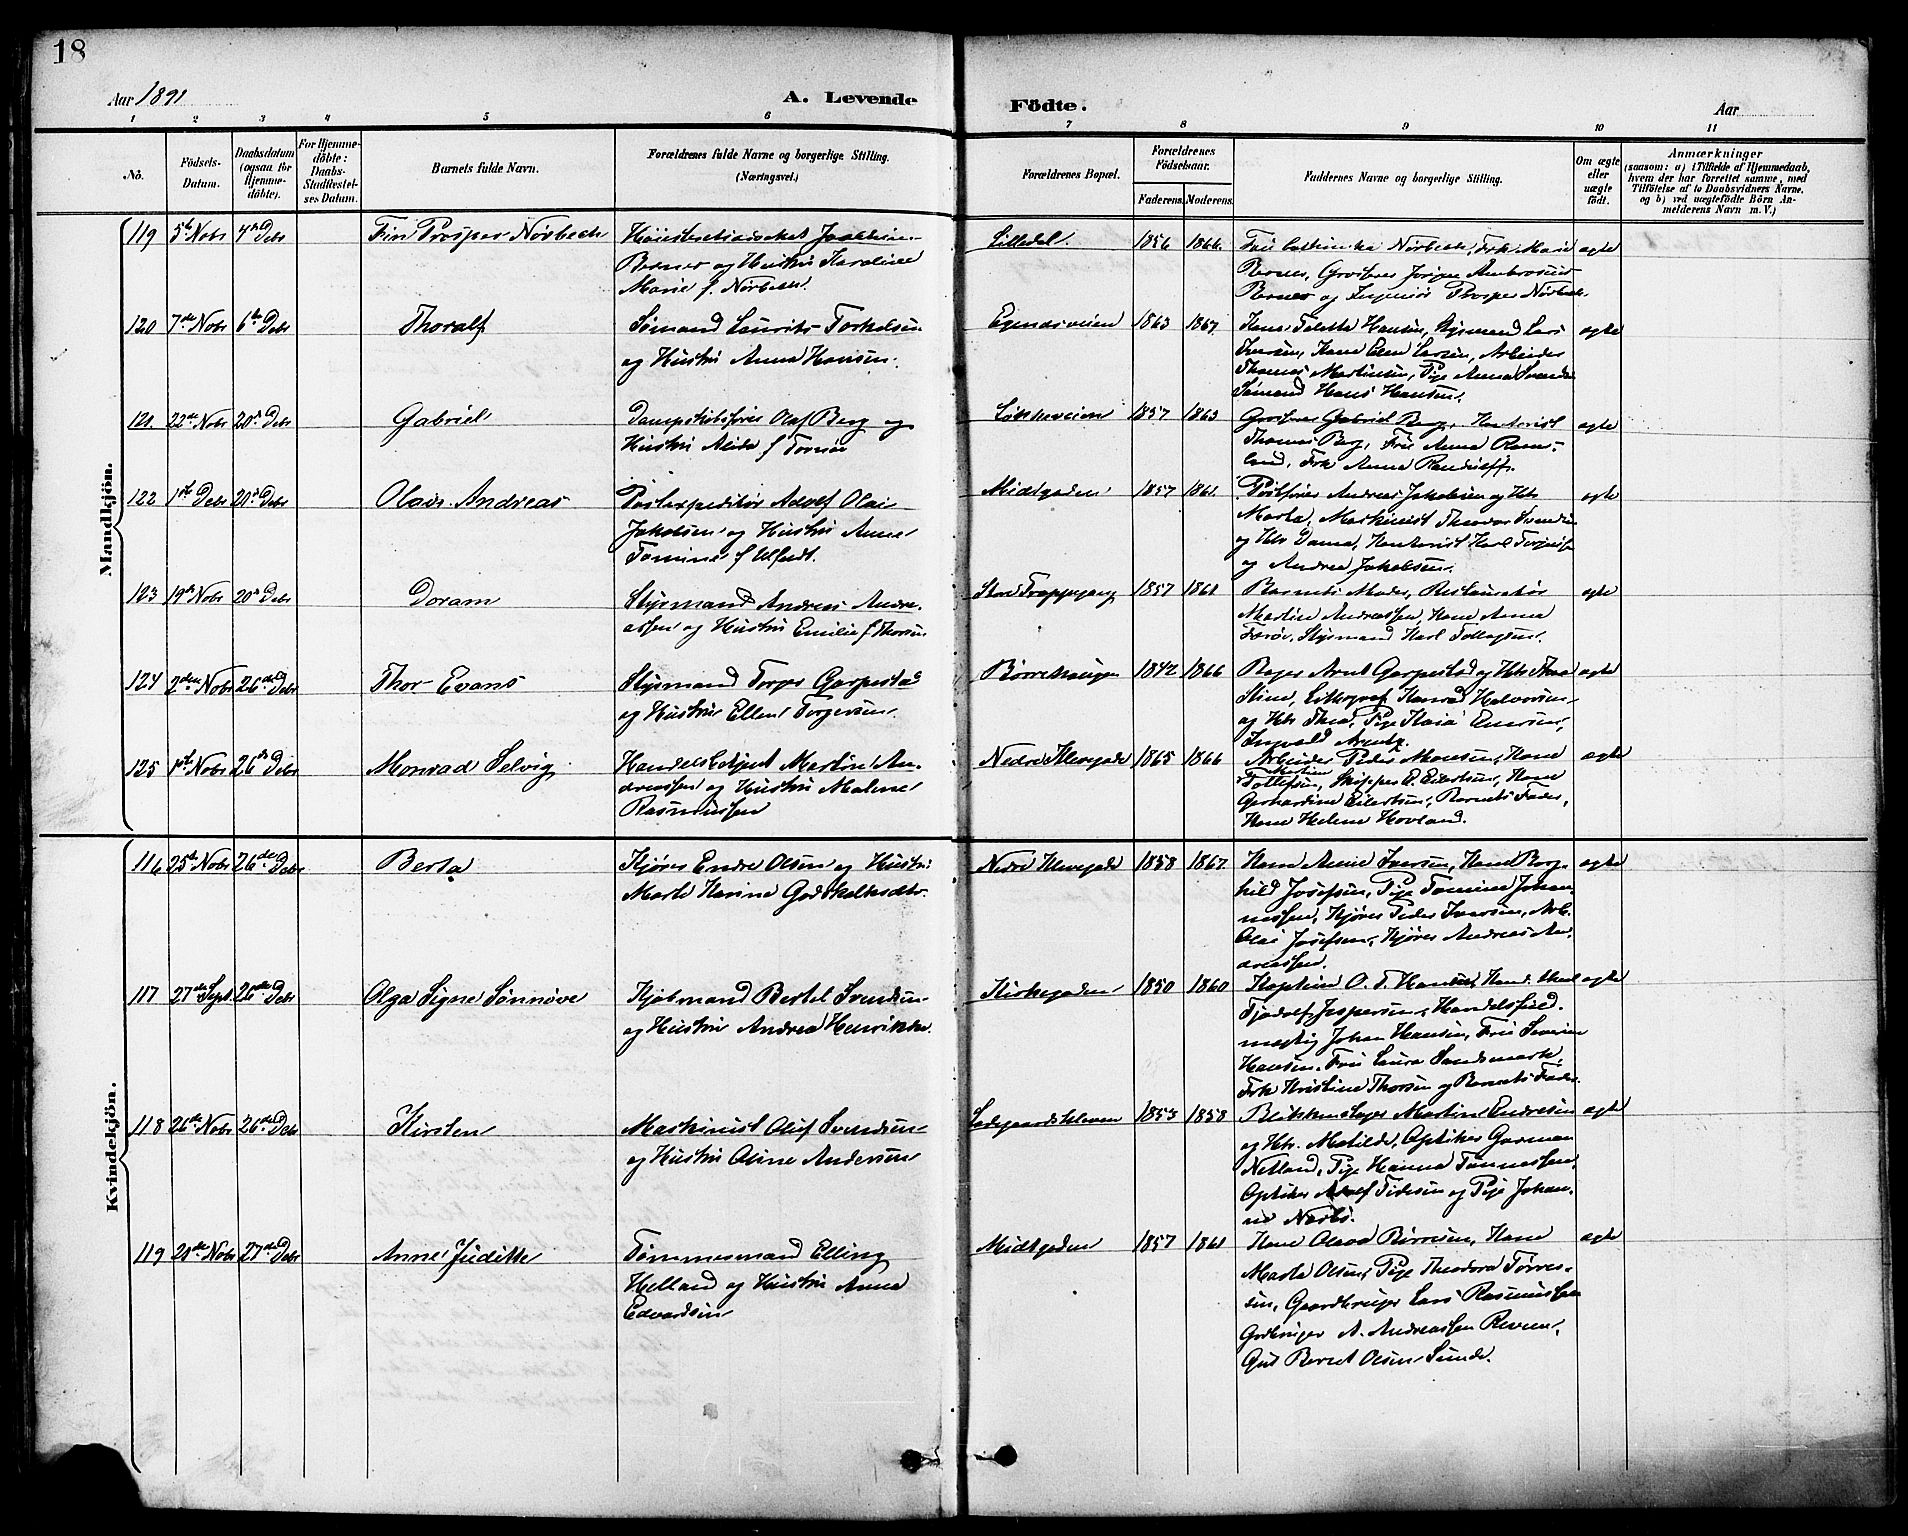 18
Aar 1891
A. Levende
Födte.
Aar
1 2 3 4 5 6 7 8 9 10 11
No.
Födsels-
Datum.
Daabsdatum
(ogsaa for
Hjemme-
döbte).
For Hjemme-
döbte:
Daabs-
Stadfestel-
ses Datum.
Barnets fulde Navn.
Forældrenes fulde Navne og borgerlige Stilling.
(Næringsvei.)
Forældrenes Bopæl.
Forældrenes
Födselsaar.
Faderens. Moderens.
Faddernes Navne og borgerlige Stilling.
Om ægte
eller
uægte
födt.
Anmærkninger
(saasom: a) i Tilfælde af Hjemmedaab,
hvem der har forrettet samme, med
Tilföielse af to Daabsvidners Navne,
og b) ved uægtefödte Börn An-
melderens Navn m. V.)
Mandkjön.
119 5th Novbr 4th Debr Fin Prosper Nörbech
Berner og Hustru Karoline
Marie f. Nörbech.
Lilledal. 1856 1866
Frk. Marie
Berner, Grosserer Jörgen Ambrosius
Berner og Ingeniör Prosper Nörbech
ægte
120 7de Novbr 6te Debr Thoralf
Sömand Laurits Torkelsen
og Hustru Anna Hansen.
Egenæsveien 1863 1867.
Kone Hansen, Styrmand Lars
Iversen, Kone Elen Larsen, Arbeider
Thomas Martinsen, Pige Anna
Sömand Hans Hansen.
ægte
121. 22de Novbr 20de Debr Gabriel
Dampskibsförer Olaf Berg og
Hustru Alida f. Tornöe
Lökkeveien 1857 1863
Grosserer Gabriel Berg, Kontorist
Thomas Berg, Frue Anna
Frk Anna Randulff.
ægte
122 1ste Debr 20de Debr Olais Andreas
Postexpeditör Adolf Olai
Jakobsen og Hustru Anne
Tomine f. Ulfedt.
Midtgaden 1857 1861.
Andreas Jakobsen og Htr
Marta, Maskinist Thorvar Svendsen
og Htr Dama, Kontorist Karl
og Andrea Jakobsen.
ægte
123 19de Novbr 20de Debr Doram
Styrmand Andreas Andre-
assen og Hustru Emilie f. Thorsen
Store Trappegang 1857 1861
Barnets Moder, Restauratör
Martin Andreassen, Kone Anna
Styrmand Karl Tollagsen.
ægte
124 2den Novbr 26de Debr Thor Evans
Styrmand Torger Garpestad
og Hustru Ellen Torgersen.
Börrehaugen 1842 1866
Bager Arnt Garpestad og Htr
Stine, Litograf Konrad Halvorsen
og Htr Thea, Pige Kaia
Ingvald Arentz.
ægte
125 1ste Novbr 26de Debr Monrad Selvig
Handelsbetjent Martin An-
dreassen og Hustru Malene
Rasmussen
Nedre Klevegade 1865 1866
Arbeider Peder Monsen, Kone
Martine
Tollefsen, Skipper P. Eilertsen, Kone
Gerhardine Eilertsen, Barnets Fader,
Kone Helene Hovland.
ægte
Kvindekjön.
116 25de Novbr 26de Debr Berta
Kjörer Endre Olsen og Hustru
Marte Karine Godskalksdtr.
Nedre Klevegade 1858 1867.
Kone Anne Iversen, Kone Borg-
hild Josefsen, Pige Tomine Johan-
nessen, Kjörer Peder Iversen, Arb.
Olai Josefsen, Kjörer Andreas An-
dreassen.
ægte
117 27de Sept. 26de Debr Olga Signe Sönnöve
Kjöbmand Bertel Svendsen
og Hustru Andrea Henrikke.
Kirkegaden 1850 1860
Kaptein O. T. Hansen,
Jespersen, Handelsfuld-
mægtig Johan Hansen, Frue Severine
Hansen, Frue Laura Sandsmark,
Frk Kristine Thorsen og Barnets Fader.
ægte
118 26de Novbr 26de Debr Kirsten
Maskinist Oluf Svendsen
og Hustru Oline Andersen
Ladegaardskleven 1853 1858
Blikkenslager Martin Endresen
og Htr. Matilde, Optiker Garman
Netland, Pige Hanna Tönnessen,
Optiker Adolf Tidesen og Pige Johan-
ne Nærbö.
ægte
119 28de Novbr 27de Debr Anne Juditte
Tömmermand Elling
Helland og Hustru Anna
Edvardsen
Midtgaden 1857 1861
Kone Olava Börresen, Kone
Marta Olsen, Pige Theodora Törres-
sen, Gaardbruger Lars Rasmussen
Gdbruger A. Andreassen Reveen,
Gut Bernt Olsen Sunde.
ægte